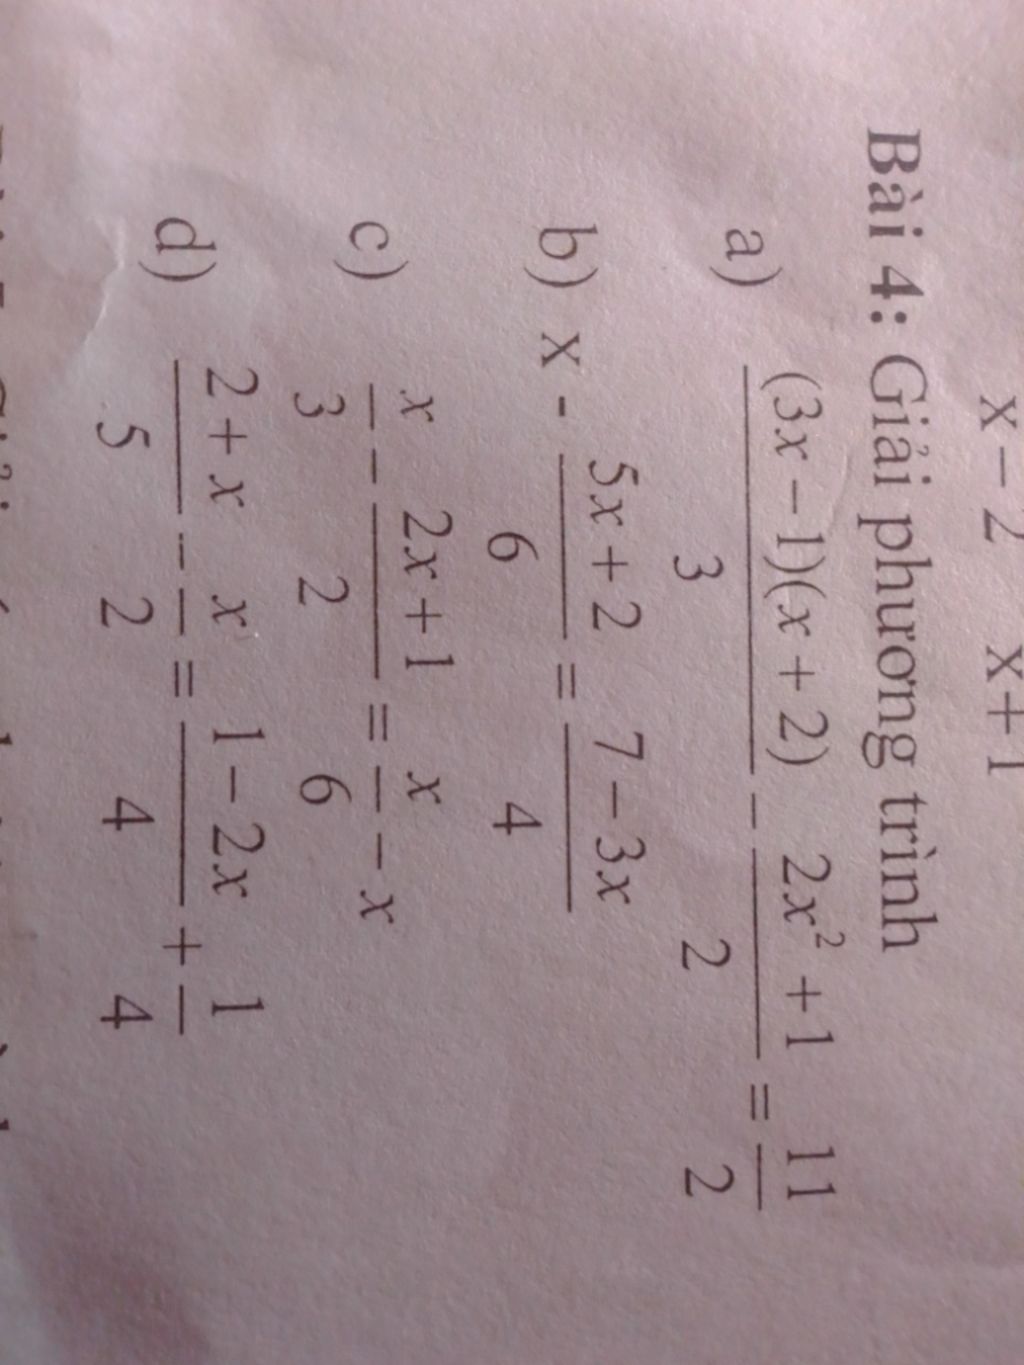 x − 2 x+1
Bài 4: Giải phương trình
a) \frac{(3x − 1)(x + 2)}{3} − \frac{2x² + 1}{2} = \frac{11}{2}
b) x - \frac{5x + 2}{6} = \frac{7 − 3x}{4}
c) \frac{x}{3} − \frac{2x + 1}{2} = \frac{x}{6} − x
d) \frac{2 + x}{5} − \frac{x}{2} = \frac{1 − 2x}{4} + \frac{1}{4}